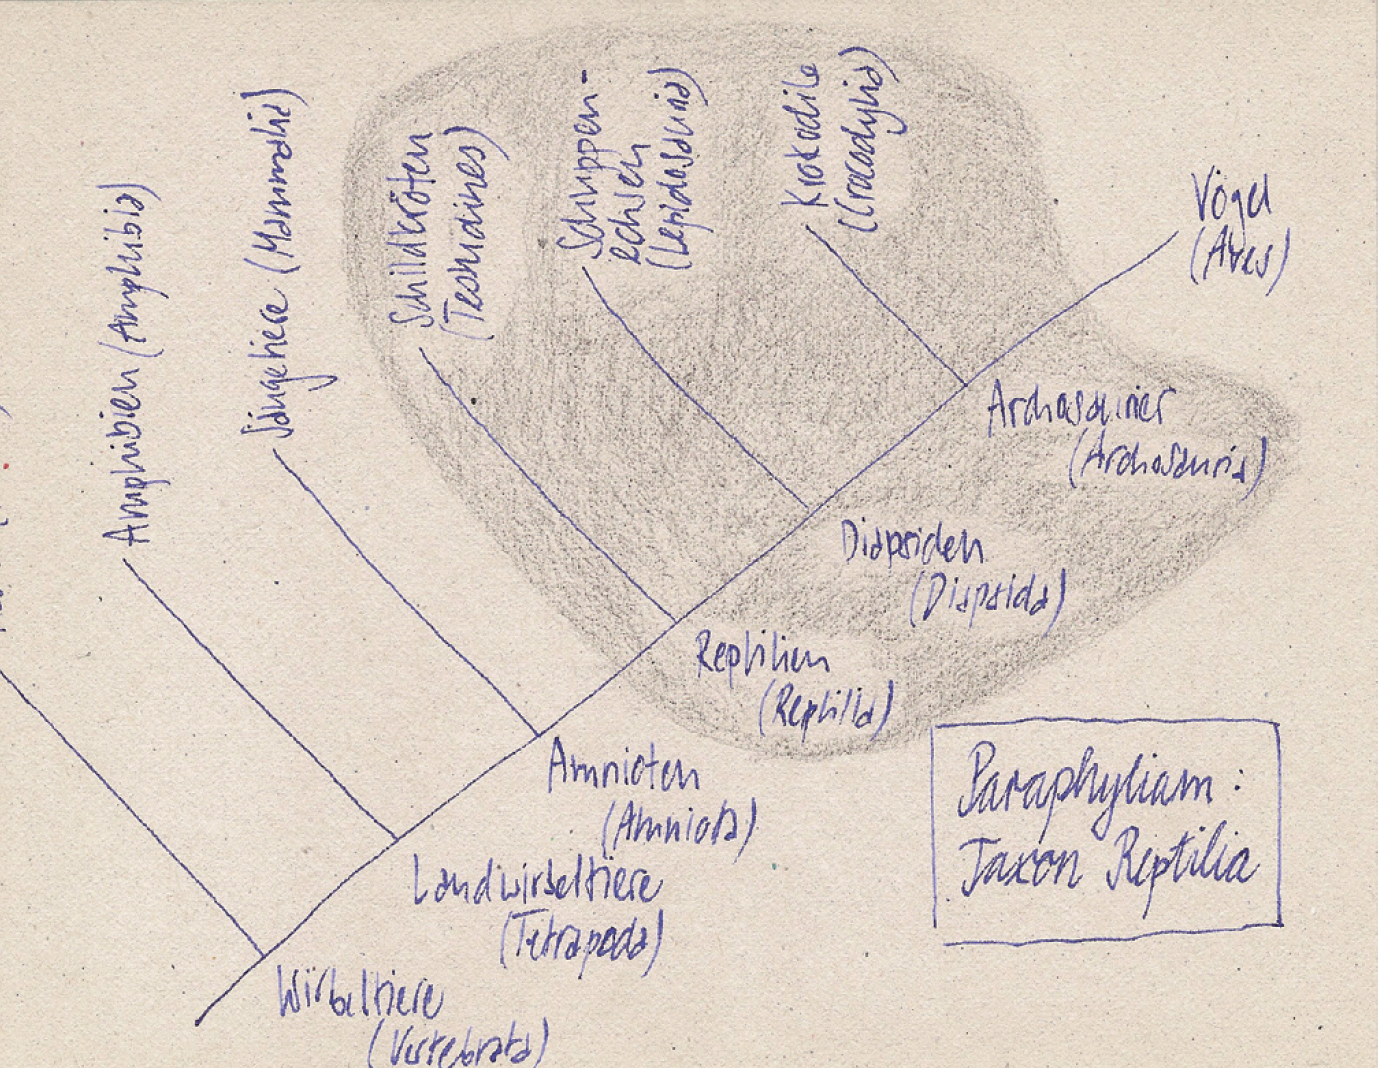 Amphibien (Amphibia)
Säugetiere (Mammalia)
Schildkröten
(Testudines)
Schuppen-
echsen
(Lepidosauria)
Krokodile
(Crocodylia)
Vögel
(Aves)
Archosaurier
(Archosauria)
Diapsiden
(Diapsida)
Reptilien
(Reptilia)
Amnioten
(Amniota)
Landwirbeltiere
(Tetrapoda)
Wirbeltiere
(Vertebrata)
Paraphylium:
Taxon Reptilia